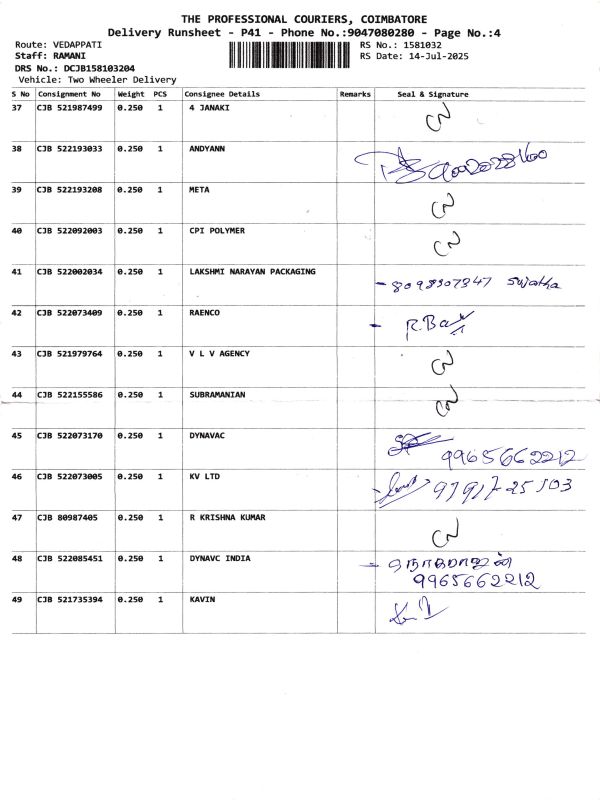 THE PROFESSIONAL COURIERS, COIMBATORE
Delivery Runsheet - P41 - Phone No.:9047080280 - Page No.:4
Route: VEDAPPATI RS No.: 1581032
Staff: RAMANI RS Date: 14-Jul-2025
DRS No.: DCJB158103204
Vehicle: Two Wheeler Delivery
S No Consignment No Weight PCS Consignee Details Remarks Seal & Signature
37 CJB 521987499 0.250 1 4 JANAKI
38 CJB 522193033 0.250 1 ANDYANN
39 CJB 522193208 0.250 1 META
40 CJB 522092003 0.250 1 CPI POLYMER
41 CJB 522002034 0.250 1 LAKSHMI NARAYAN PACKAGING - 8098307347 Sujatha
42 CJB 522073409 0.250 1 RAENCO
43 CJB 521979764 0.250 1 V L V AGENCY
44 CJB 522155586 0.250 1 SUBRAMANIAN
45 CJB 522073170 0.250 1 DYNAVAC 9965662212
46 CJB 522073005 0.250 1 KV LTD
47 CJB 80987405 0.250 1 R KRISHNA KUMAR
48 CJB 522085451 0.250 1 DYNAVC INDIA
9965662212
49 CJB 521735394 0.250 1 KAVIN